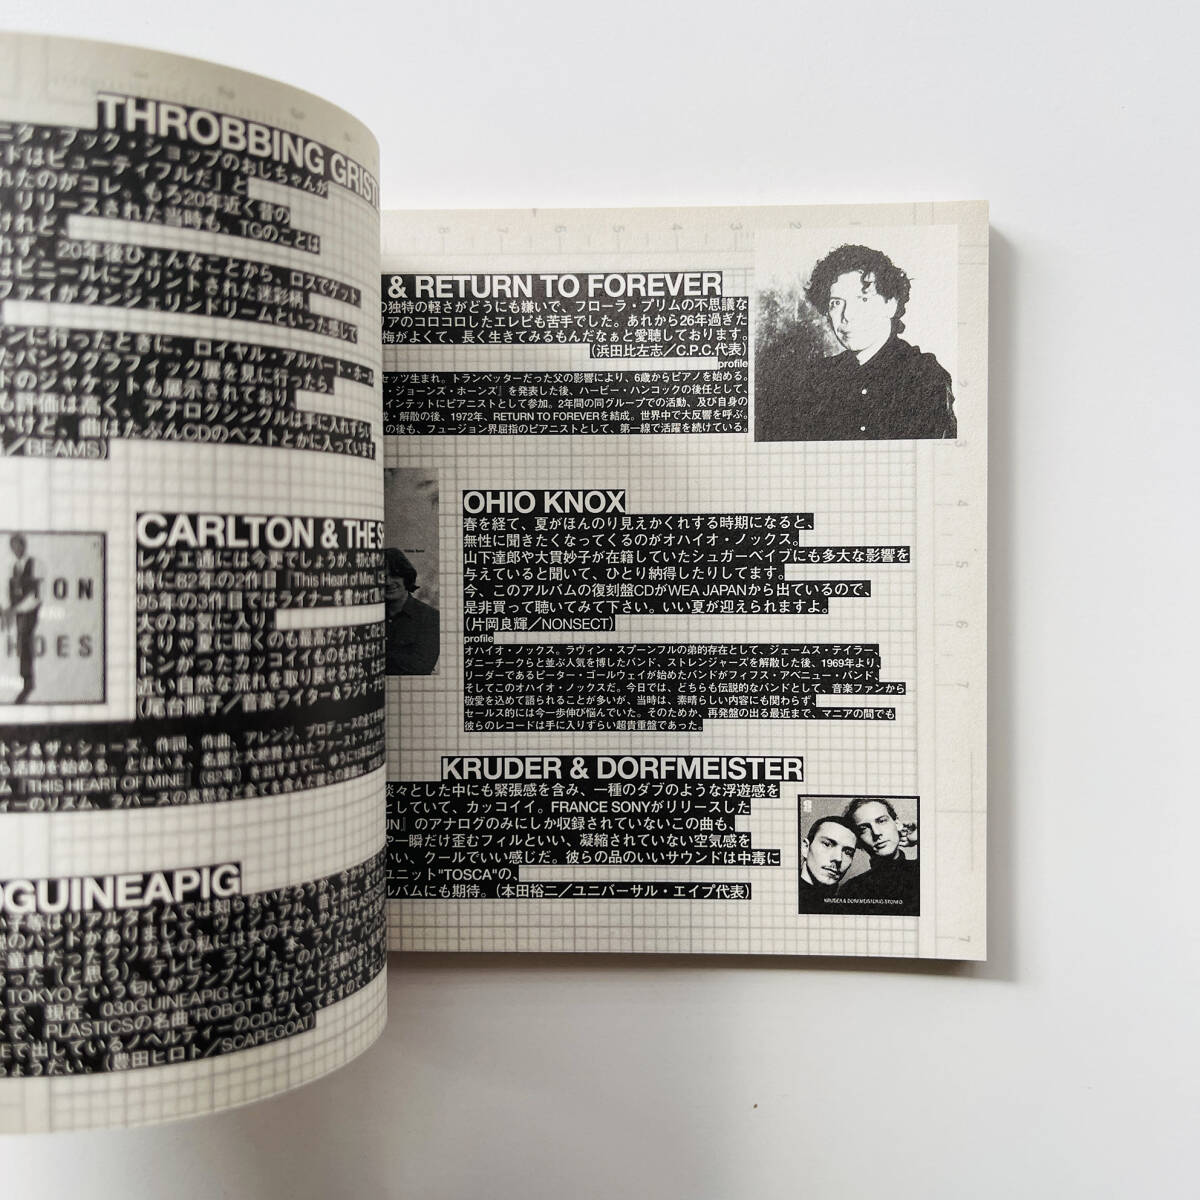 THROBBING GRIST
ニク・ブック・ショップのおじちゃんが
ドはビューティフルだ』と
れたのがコレ。もろ20年近く昔の
リリースされた当時も、TGのことは
けれど、
れず、20年後ひょんなことから、ロスでゲット
はビニールにプリントされた迷彩柄。
ファイがタンジェリンドリームといった感じで
ンに行ったときに、ロイヤル・アルバート・ホール
たパンクグラフィック展を見に行ったら、
ドのジャケットも展示されており、
も評価は高く、アナログシングルは手に入れずらい
いけど、曲はたぶんCDのベストとかに入っています
／BEAMS)
CARLTON & THE S
レゲエ通には今更でしょうが、初心者
特に82年の2作目『This Heart of Mine』
95年の3作目ではライナーを書かせて
大のお気に入り。
そりゃ夏に聴くのも最高だケド、この
トンがったカッコイイものも好きだケド、
近い自然な流れを取り戻せるから、
(尾台順子／音楽ライター&ラジオ
トン&ザ・シューズ。作詞、作曲、アレンジ、プロデュースの全てを
活動を始める。とはいえ、名盤と大絶賛されたファースト・アルバム
『THIS HEART OF MINE』(82年)を出すまでに、
ティーのリズム、ラバースの哀愁など全てを含んだ彼らの楽曲は、
GUINEAPIG
等はリアルタイムでは知らないだろうが、
のバンドがありまして、
童貞だったクソガキの私には
あった(と思う)、テレビ、ラジオ、本、ライブなんかを
TOKYOという匂いがプンプンしたこのバンドに、
で、現在、030GUINEAPIGという
て、PLASTICSの名曲"ROBOT"をカバーしちゃいました。
Eで出しているノベルティーのCDに入ってますので、
ちょうだい。(豊田ヒロト／SCAPEGOAT)
& RETURN TO FOREVER
の独特の軽さがどうにも嫌いで、フローラ・プリムの不思議な
リアのコロコロしたエレピも苦手でした。あれから26年過ぎた
梅がよくて、長く生きてみるもんだなぁと愛聴しております。
(浜田比左志／C.P.C.代表)
profile
セッツ生まれ。トランペッターだった父の影響により、6歳からピアノを始める。
・ジョーンズ・ホーンズ』を発表した後、ハービー・ハンコックの後任として、
インテットにピアニストとして参加。2年間の同グループでの活動、及び自身の
・解散の後、1972年、RETURN TO FOREVERを結成。世界中で大反響を呼ぶ。
の後も、フュージョン界屈指のピアニストとして、第一線で活躍を続けている。
OHIO KNOX
春を経て、夏がほんのり見えかくれする時期になると、
無性に聞きたくなってくるのがオハイオ・ノックス。
山下達郎や大貫妙子が在籍していたシュガーベイブにも多大な影響を
与えていると聞いて、ひとり納得したりしてます。
今、このアルバムの復刻盤CDがWEA JAPANから出ているので、
是非買って聴いてみて下さい。いい夏が迎えられますよ。
(片岡良輝／NONSECT)
profile
オハイオ・ノックス。ラヴィン・スプーンフルの弟的存在として、ジェームス・テイラー、
ダニーチークらと並ぶ人気を博したバンド、ストレンジャーズを解散した後、1969年より、
リーダーであるピーター・ゴールウェイが始めたバンドがフィフス・アベニュー・バンド、
そしてこのオハイオ・ノックスだ。今日では、どちらも伝説的なバンドとして、音楽ファンから
敬愛を込めて語られることが多いが、当時は、素晴らしい内容にも関わらず、
セールス的には今一歩伸び悩んでいた。そのためか、再発盤の出る最近まで、マニアの間でも
彼らのレコードは手に入りずらい超貴重盤であった。
KRUDER & DORFMEISTER
淡々とした中にも緊張感を含み、一種のダブのような浮遊感を
としていて、カッコイイ。FRANCE SONYがリリースした
UN』のアナログのみにしか収録されていないこの曲も、
や一瞬だけ歪むフィルといい、凝縮されていない空気感を
いい、クールでいい感じだ。彼らの品のいいサウンドは中毒に
ユニット"TOSCA"の、
ルバムにも期待。(本田裕二／ユニバーサル・エイプ代表)
KRUDER & DORFMEISTER